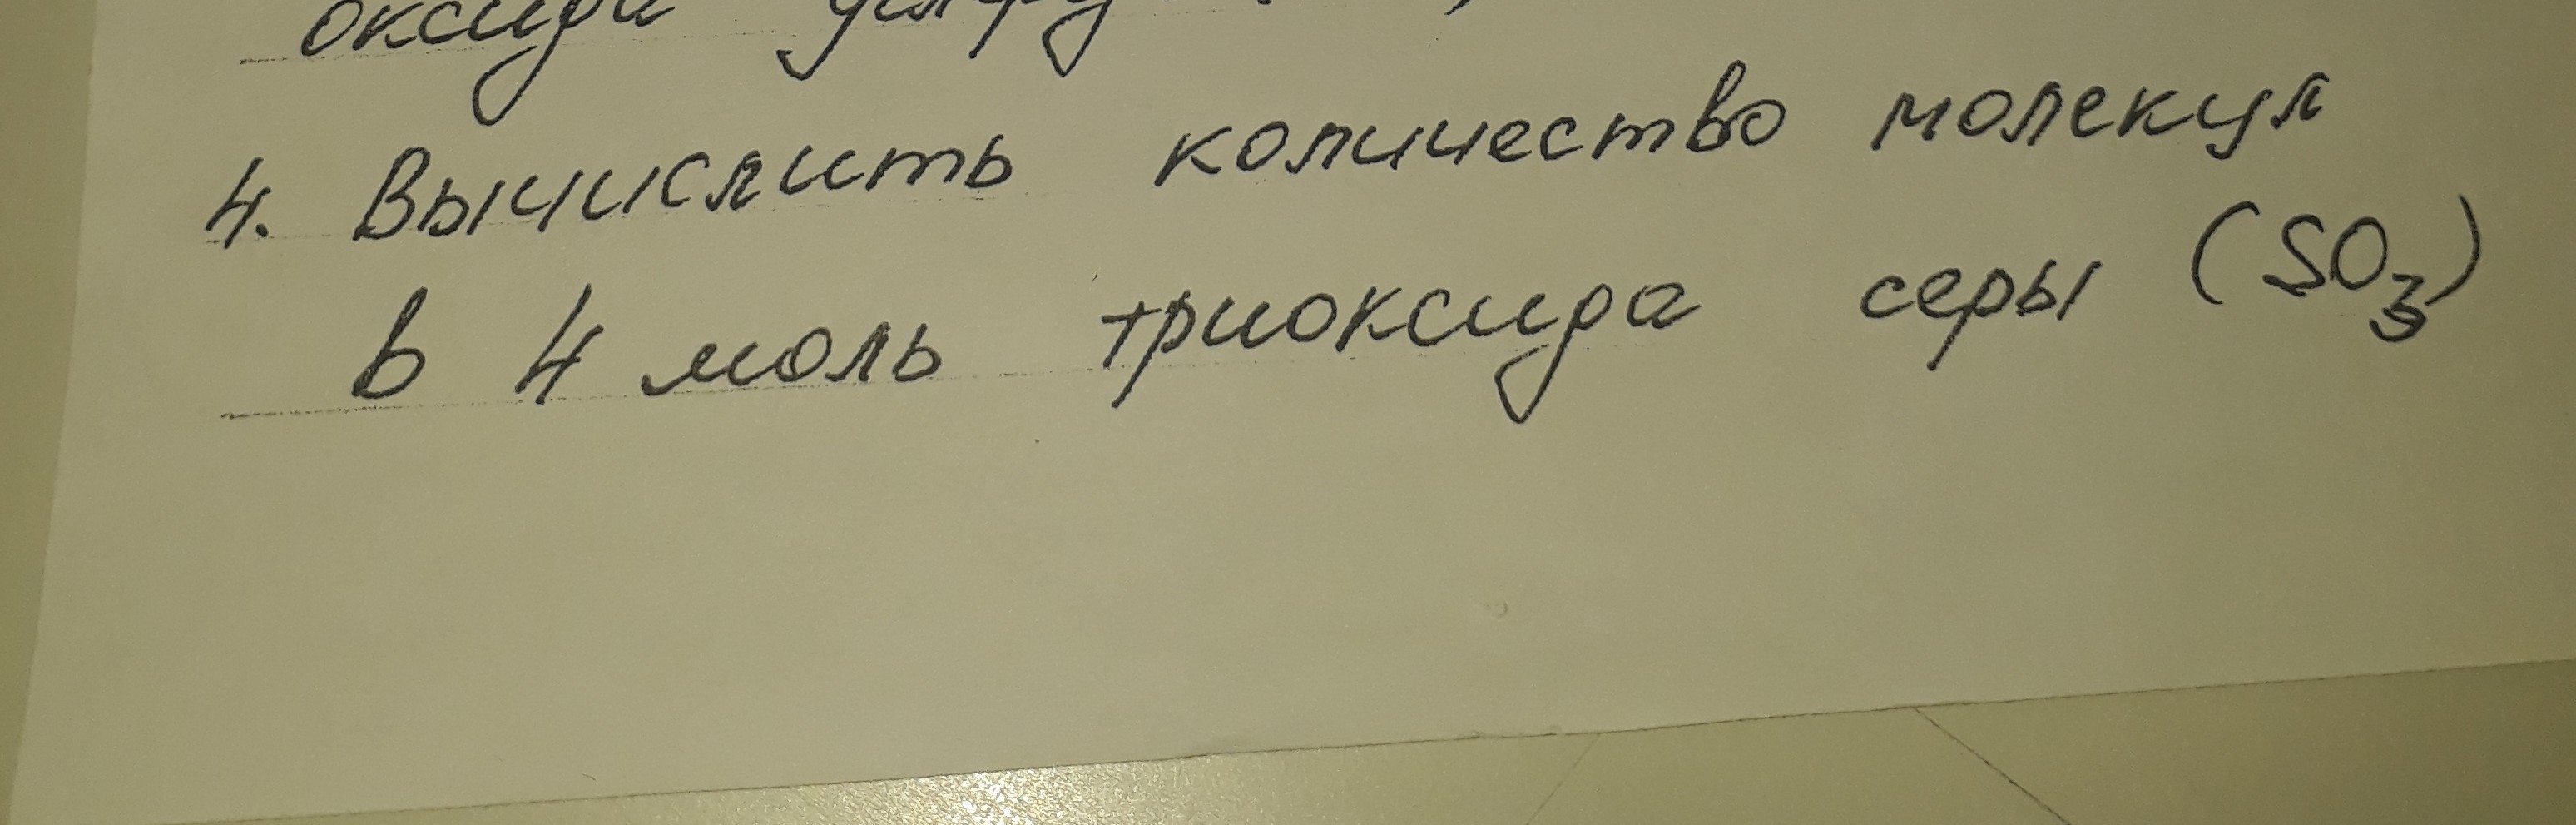 оксида
4. Вычислить количество молекул
в 4 моль триоксида серы (SO₃)